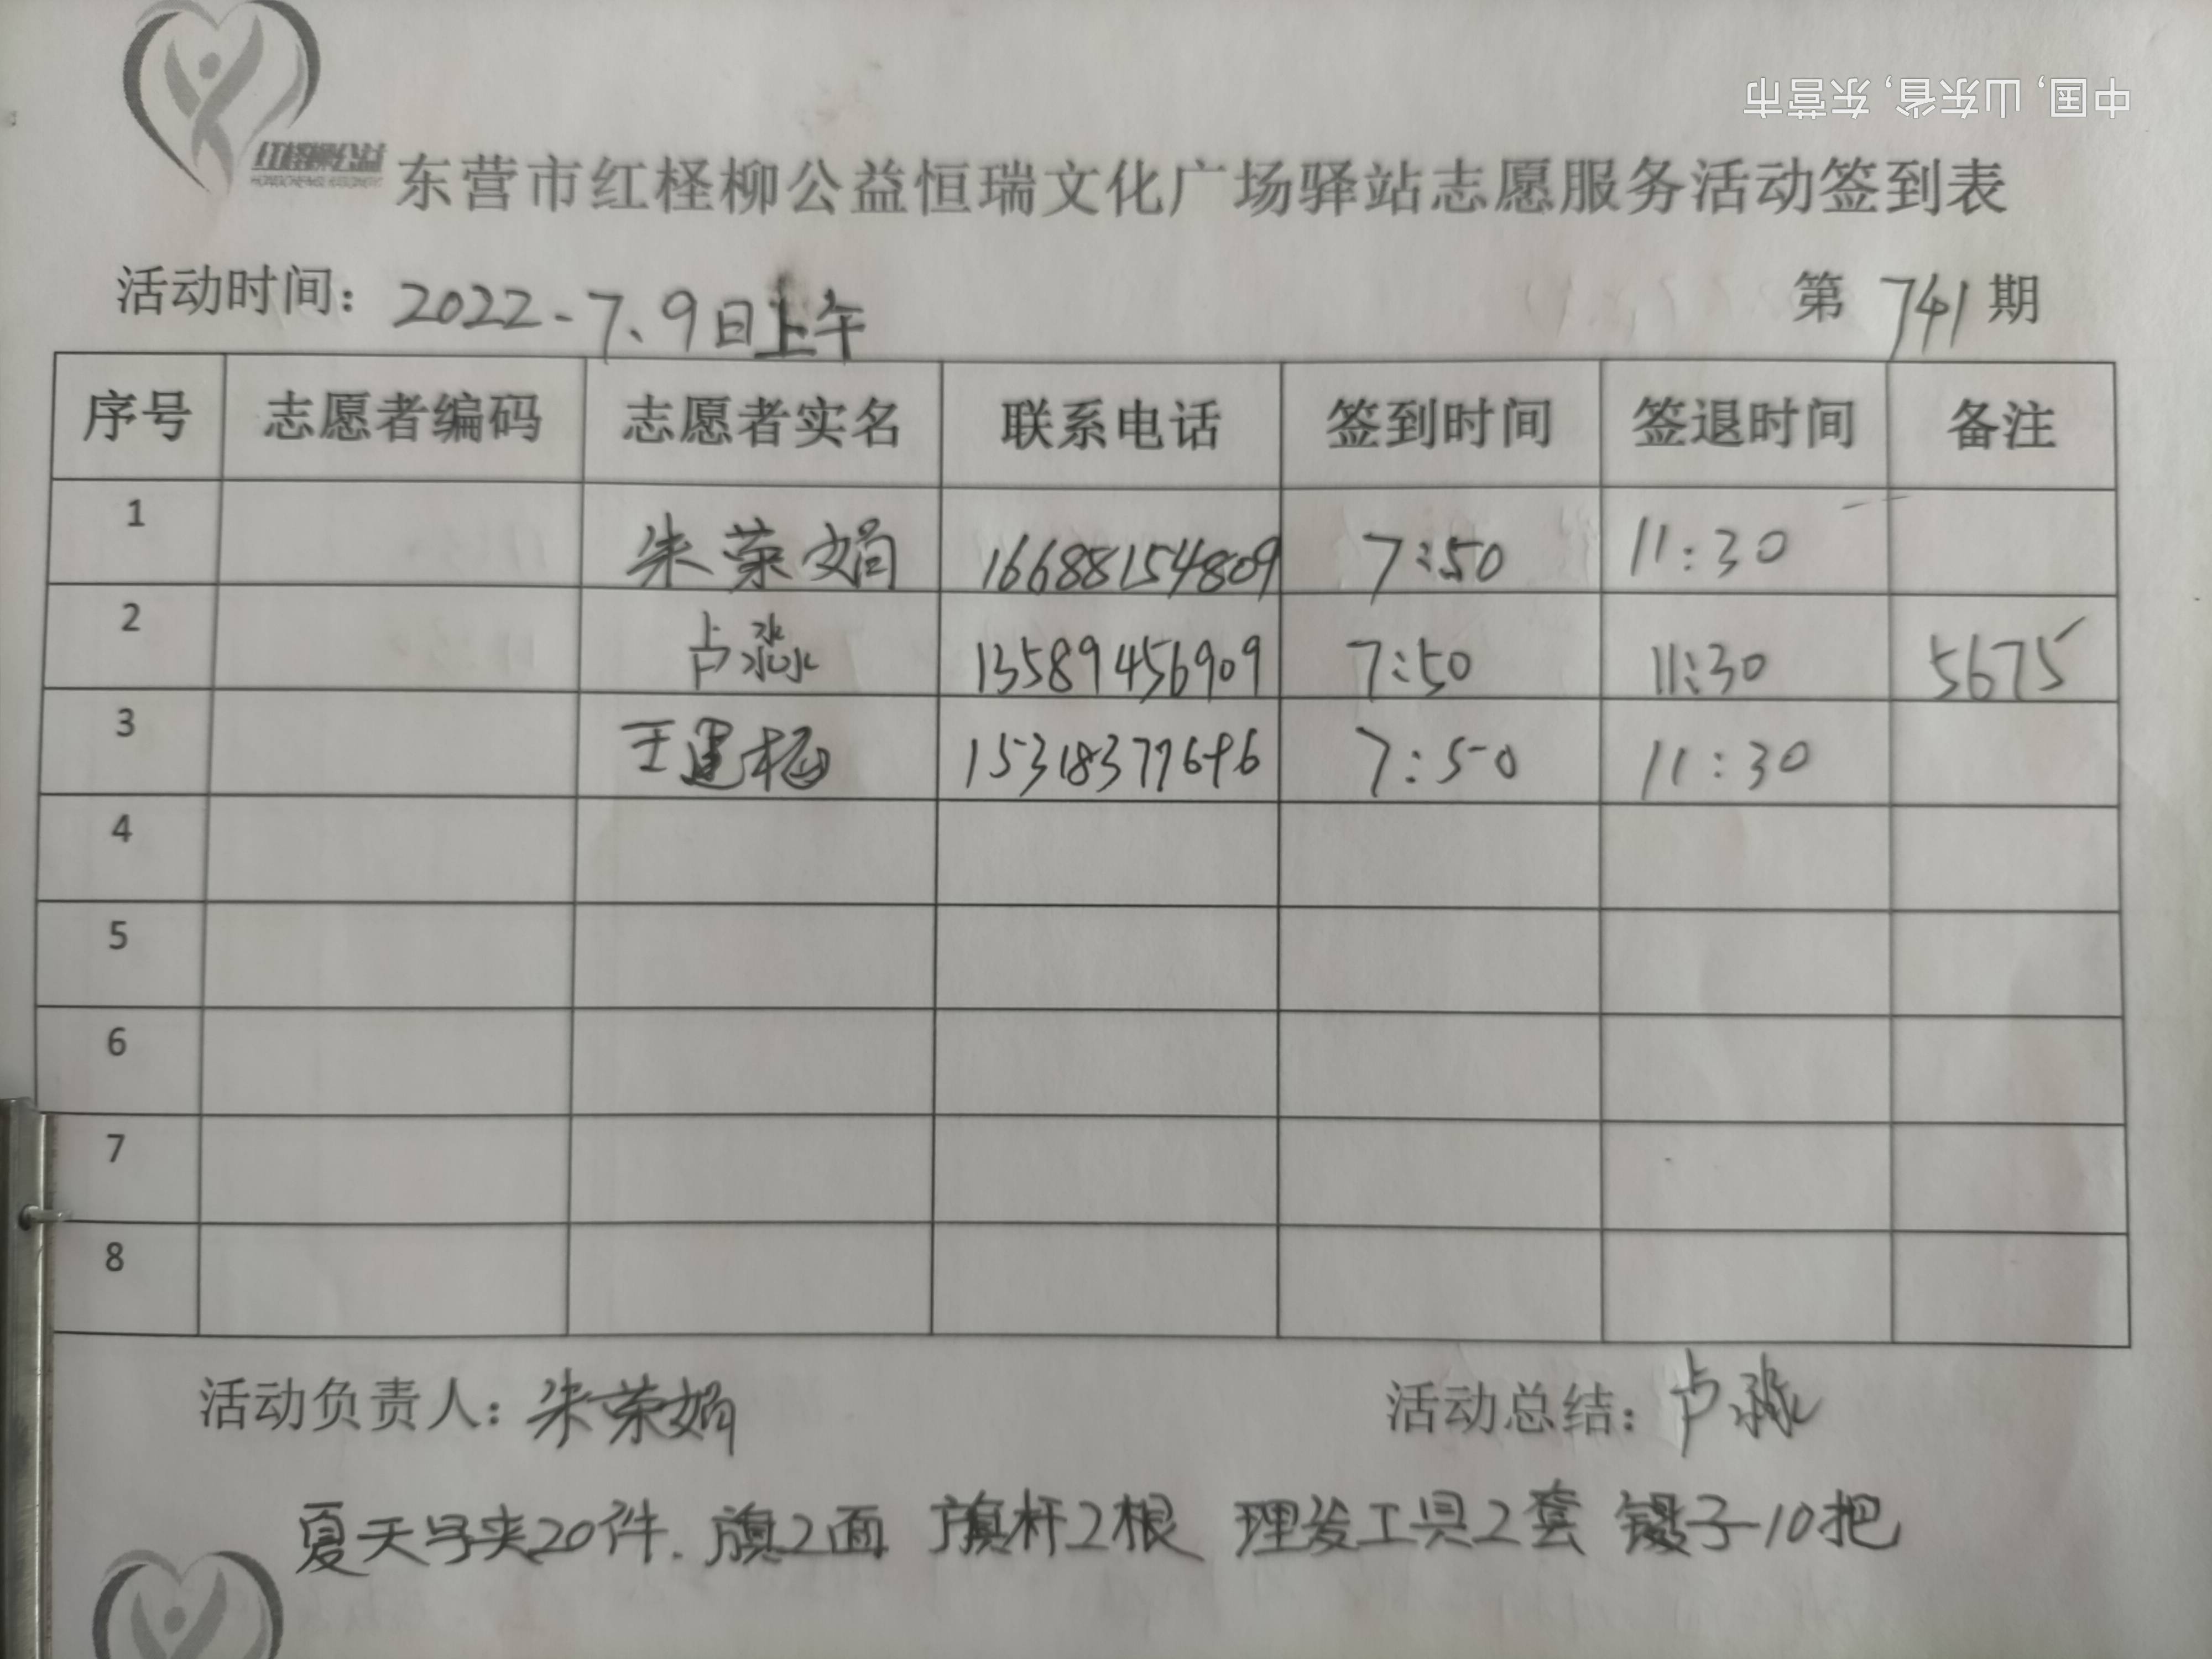 中国, 山东省, 东营市
红柽柳公益
东营市红柽柳公益恒瑞文化广场驿站志愿服务活动签到表
活动时间: 2022-7.9日上午 第 741 期
序号 志愿者编码 志愿者实名 联系电话 签到时间 签退时间 备注
1 朱荣娟 16688154809 7:50 11:30
2 卢淼 13589456909 7:50 11:30 5675
3 王建梅 15318377696 7:50 11:30
4
5
6
7
8
活动负责人: 朱荣娟 活动总结: 卢淼
夏天马夹20件. 旗2面 旗杆2根 理发工具2套 镊子10把